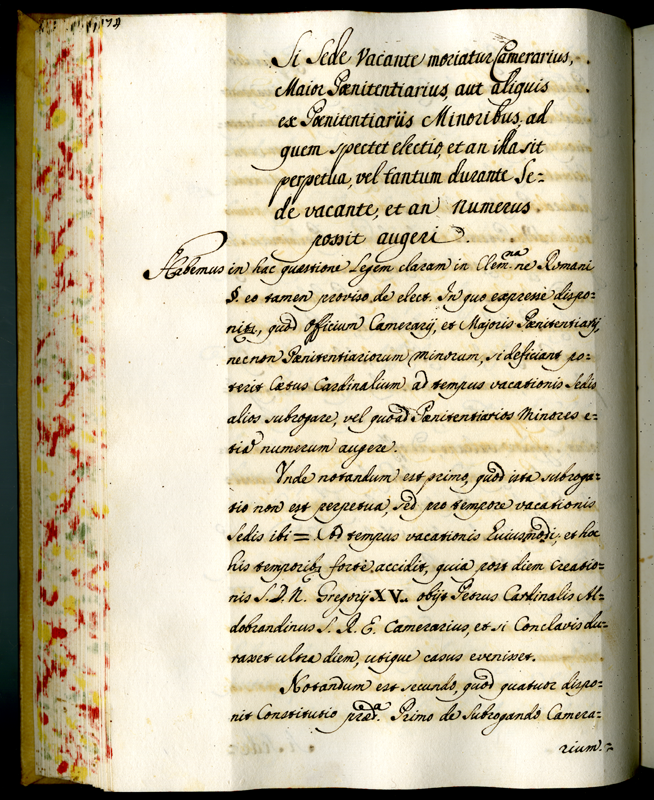 Si Sede Vacante moriatur Camerarius,
Maior Pœnitentiarius, aut aliquis
ex Pœnitentiariis Minoribus, ad
quem spectet electio, et an illa sit
perpetua, vel tantum durante Se-
de vacante, et an numerus
possit augeri.
Habemus in hac questione Legem claram in Clem.na ne Romani
§. eo tamen proviso de elect. In quo expresse dispo-
nitr., quod Officium Camerarij, et Majoris Pœnitentiarij,
necnon Pœnitentiariorum minorum, si deficiant po-
terit Cœtus Cardinalium ad tempus vacationis Sedis
alios subrogare, vel quoad Pœnitentiarios Minores e-
tiã numerum augere.
Unde notandum est primo, quod ista subroga-
tio non est perpetua, sed pro tempore vacationis
Sedis ibi = Ad tempus vacationis Huiusmodi; et hoc
his temporibs forte accidit, quia post diem Creatio-
nis S. D. N. Gregorij XV. obijt Petrus Cardinalis Al-
dobrandinus S. R. E. Camerarius, et si Conclavis du-
raret ultra diem, utique casus evenisset.
Notandum est secundo, quod quatuor dispo-
nit Constitutio præd.a Primo de Subrogando Camera-
rium.